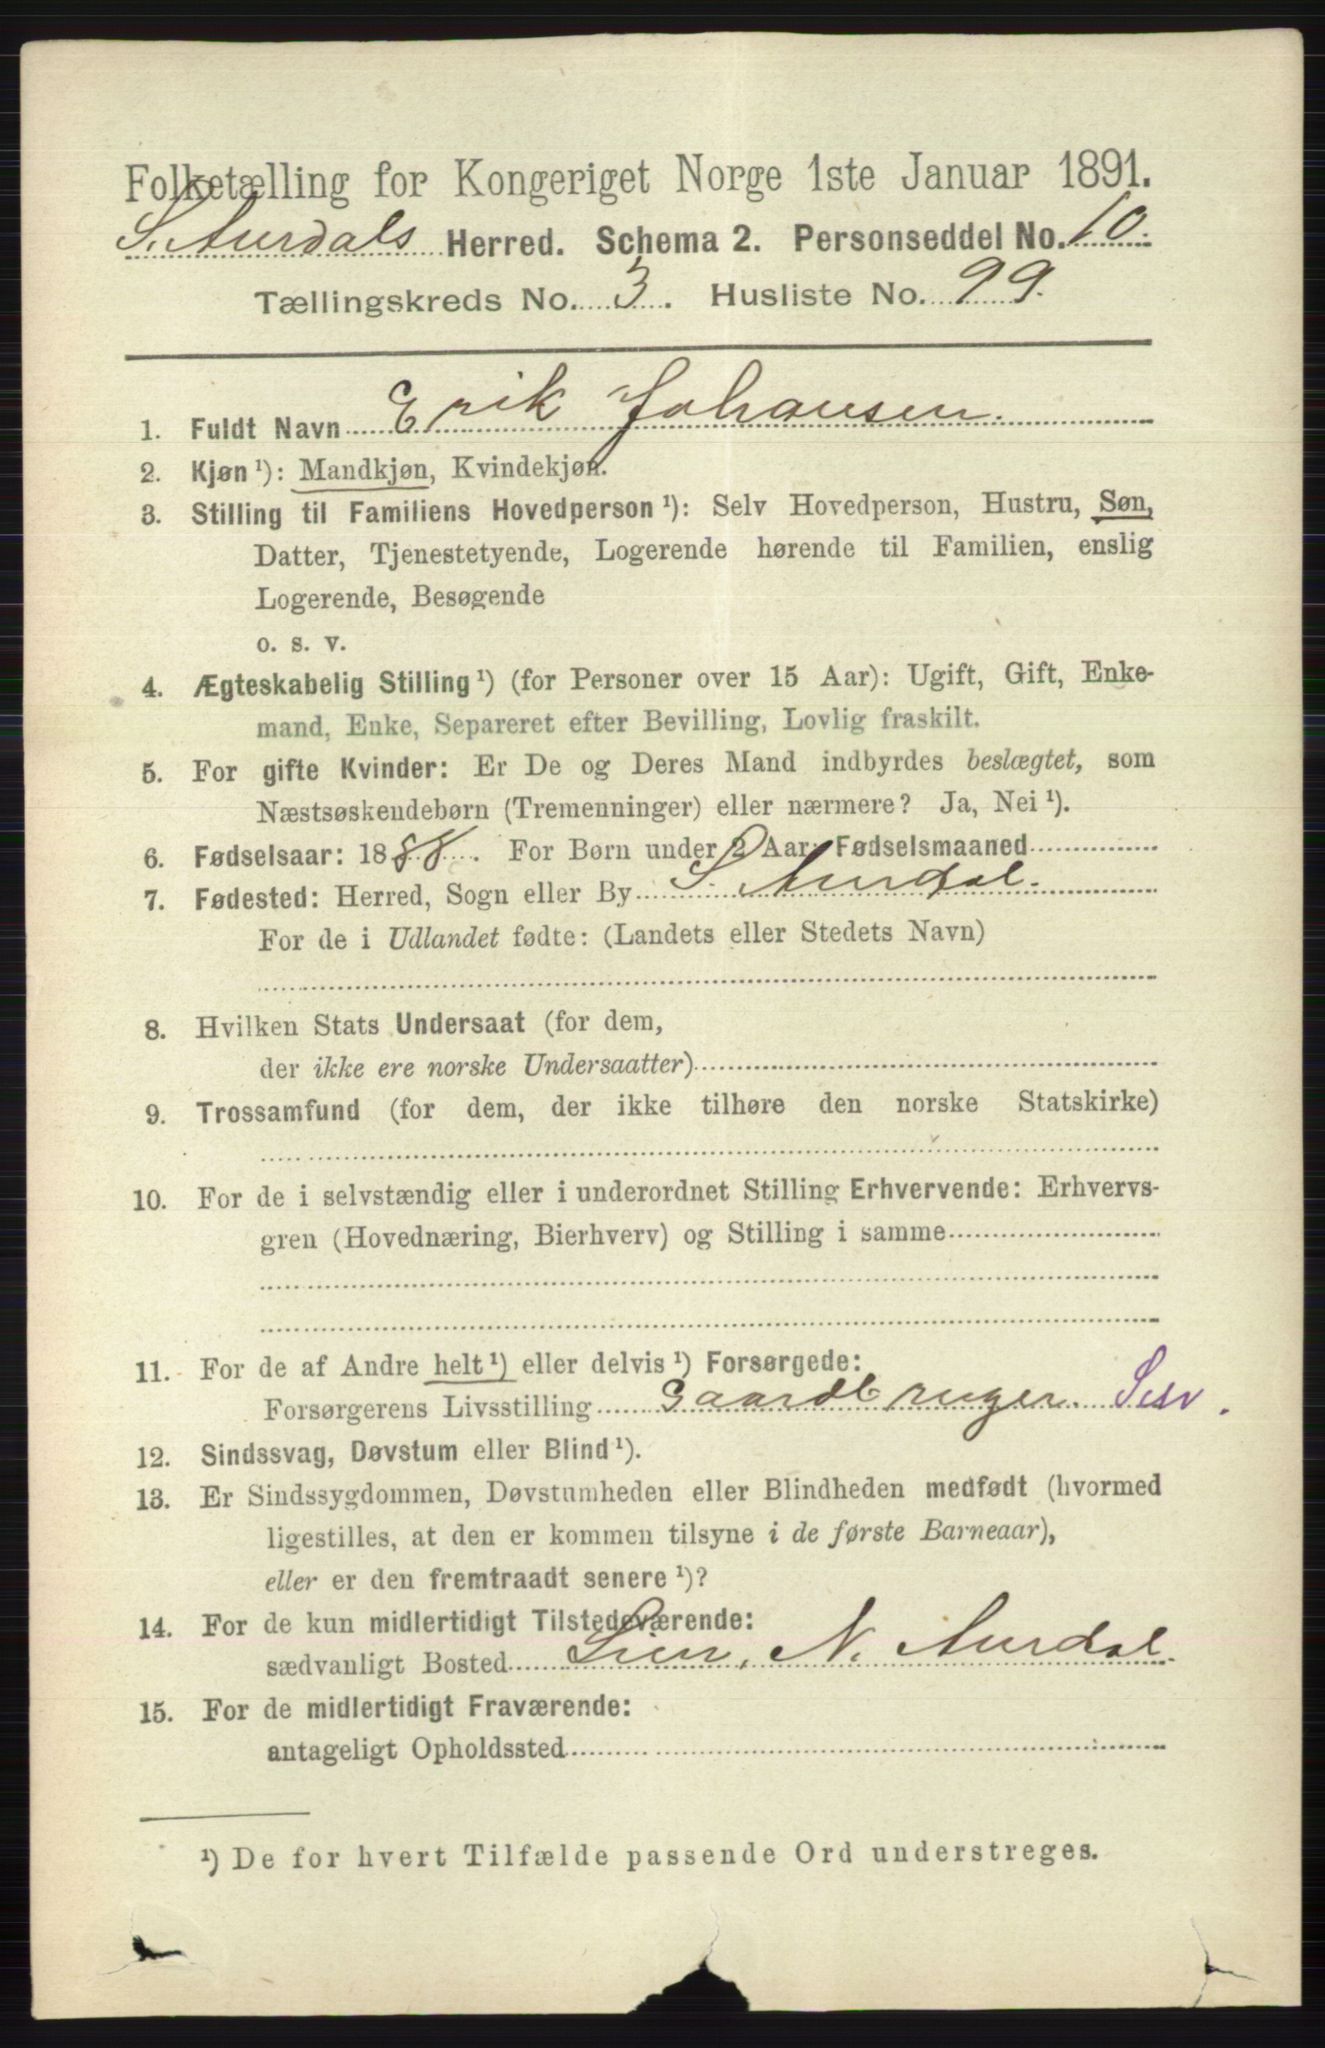 Folketælling for Kongeriget Norge 1ste Januar 1891.
S. Aurdals Herred. Schema 2. Personseddel No. 10.
Tællingskreds No. 3. Husliste No. 99.
1. Fuldt Navn Erik Johansen.
2. Kjøn ¹): Mandkjøn, Kvindekjøn.
3. Stilling til Familiens Hovedperson ¹): Selv Hovedperson, Hustru, Søn,
Datter, Tjenestetyende, Logerende hørende til Familien, enslig
Logerende, Besøgende
o. s. v.
4. Ægteskabelig Stilling ¹) (for Personer over 15 Aar): Ugift, Gift, Enke-
mand, Enke, Separeret efter Bevilling, Lovlig fraskilt.
5. For gifte Kvinder: Er De og Deres Mand indbyrdes beslægtet, som
Næstsøskendebørn (Tremenninger) eller nærmere? Ja, Nei ¹).
6. Fødselsaar: 1888. For Børn under 2 Aar: Fødselsmaaned
7. Fødested: Herred, Sogn eller By S. Aurdal.
For de i Udlandet fødte: (Landets eller Stedets Navn)
8. Hvilken Stats Undersaat (for dem,
der ikke ere norske Undersaatter)
9. Trossamfund (for dem, der ikke tilhøre den norske Statskirke)
10. For de i selvstændig eller i underordnet Stilling Erhvervende: Erhvervs-
gren (Hovednæring, Bierhverv) og Stilling i samme
11. For de af Andre helt ¹) eller delvis ¹) Forsørgede:
Forsørgerens Livsstilling Gaardbruger. Selv.
12. Sindssvag, Døvstum eller Blind ¹).
13. Er Sindssygdommen, Døvstumheden eller Blindheden medfødt (hvormed
ligestilles, at den er kommen tilsyne i de første Barneaar),
eller er den fremtraadt senere ¹)?
14. For de kun midlertidigt Tilstedeværende:
sædvanligt Bosted Lien, N. Aurdal.
15. For de midlertidigt Fraværende:
antageligt Opholdssted
¹) De for hvert Tilfælde passende Ord understreges.